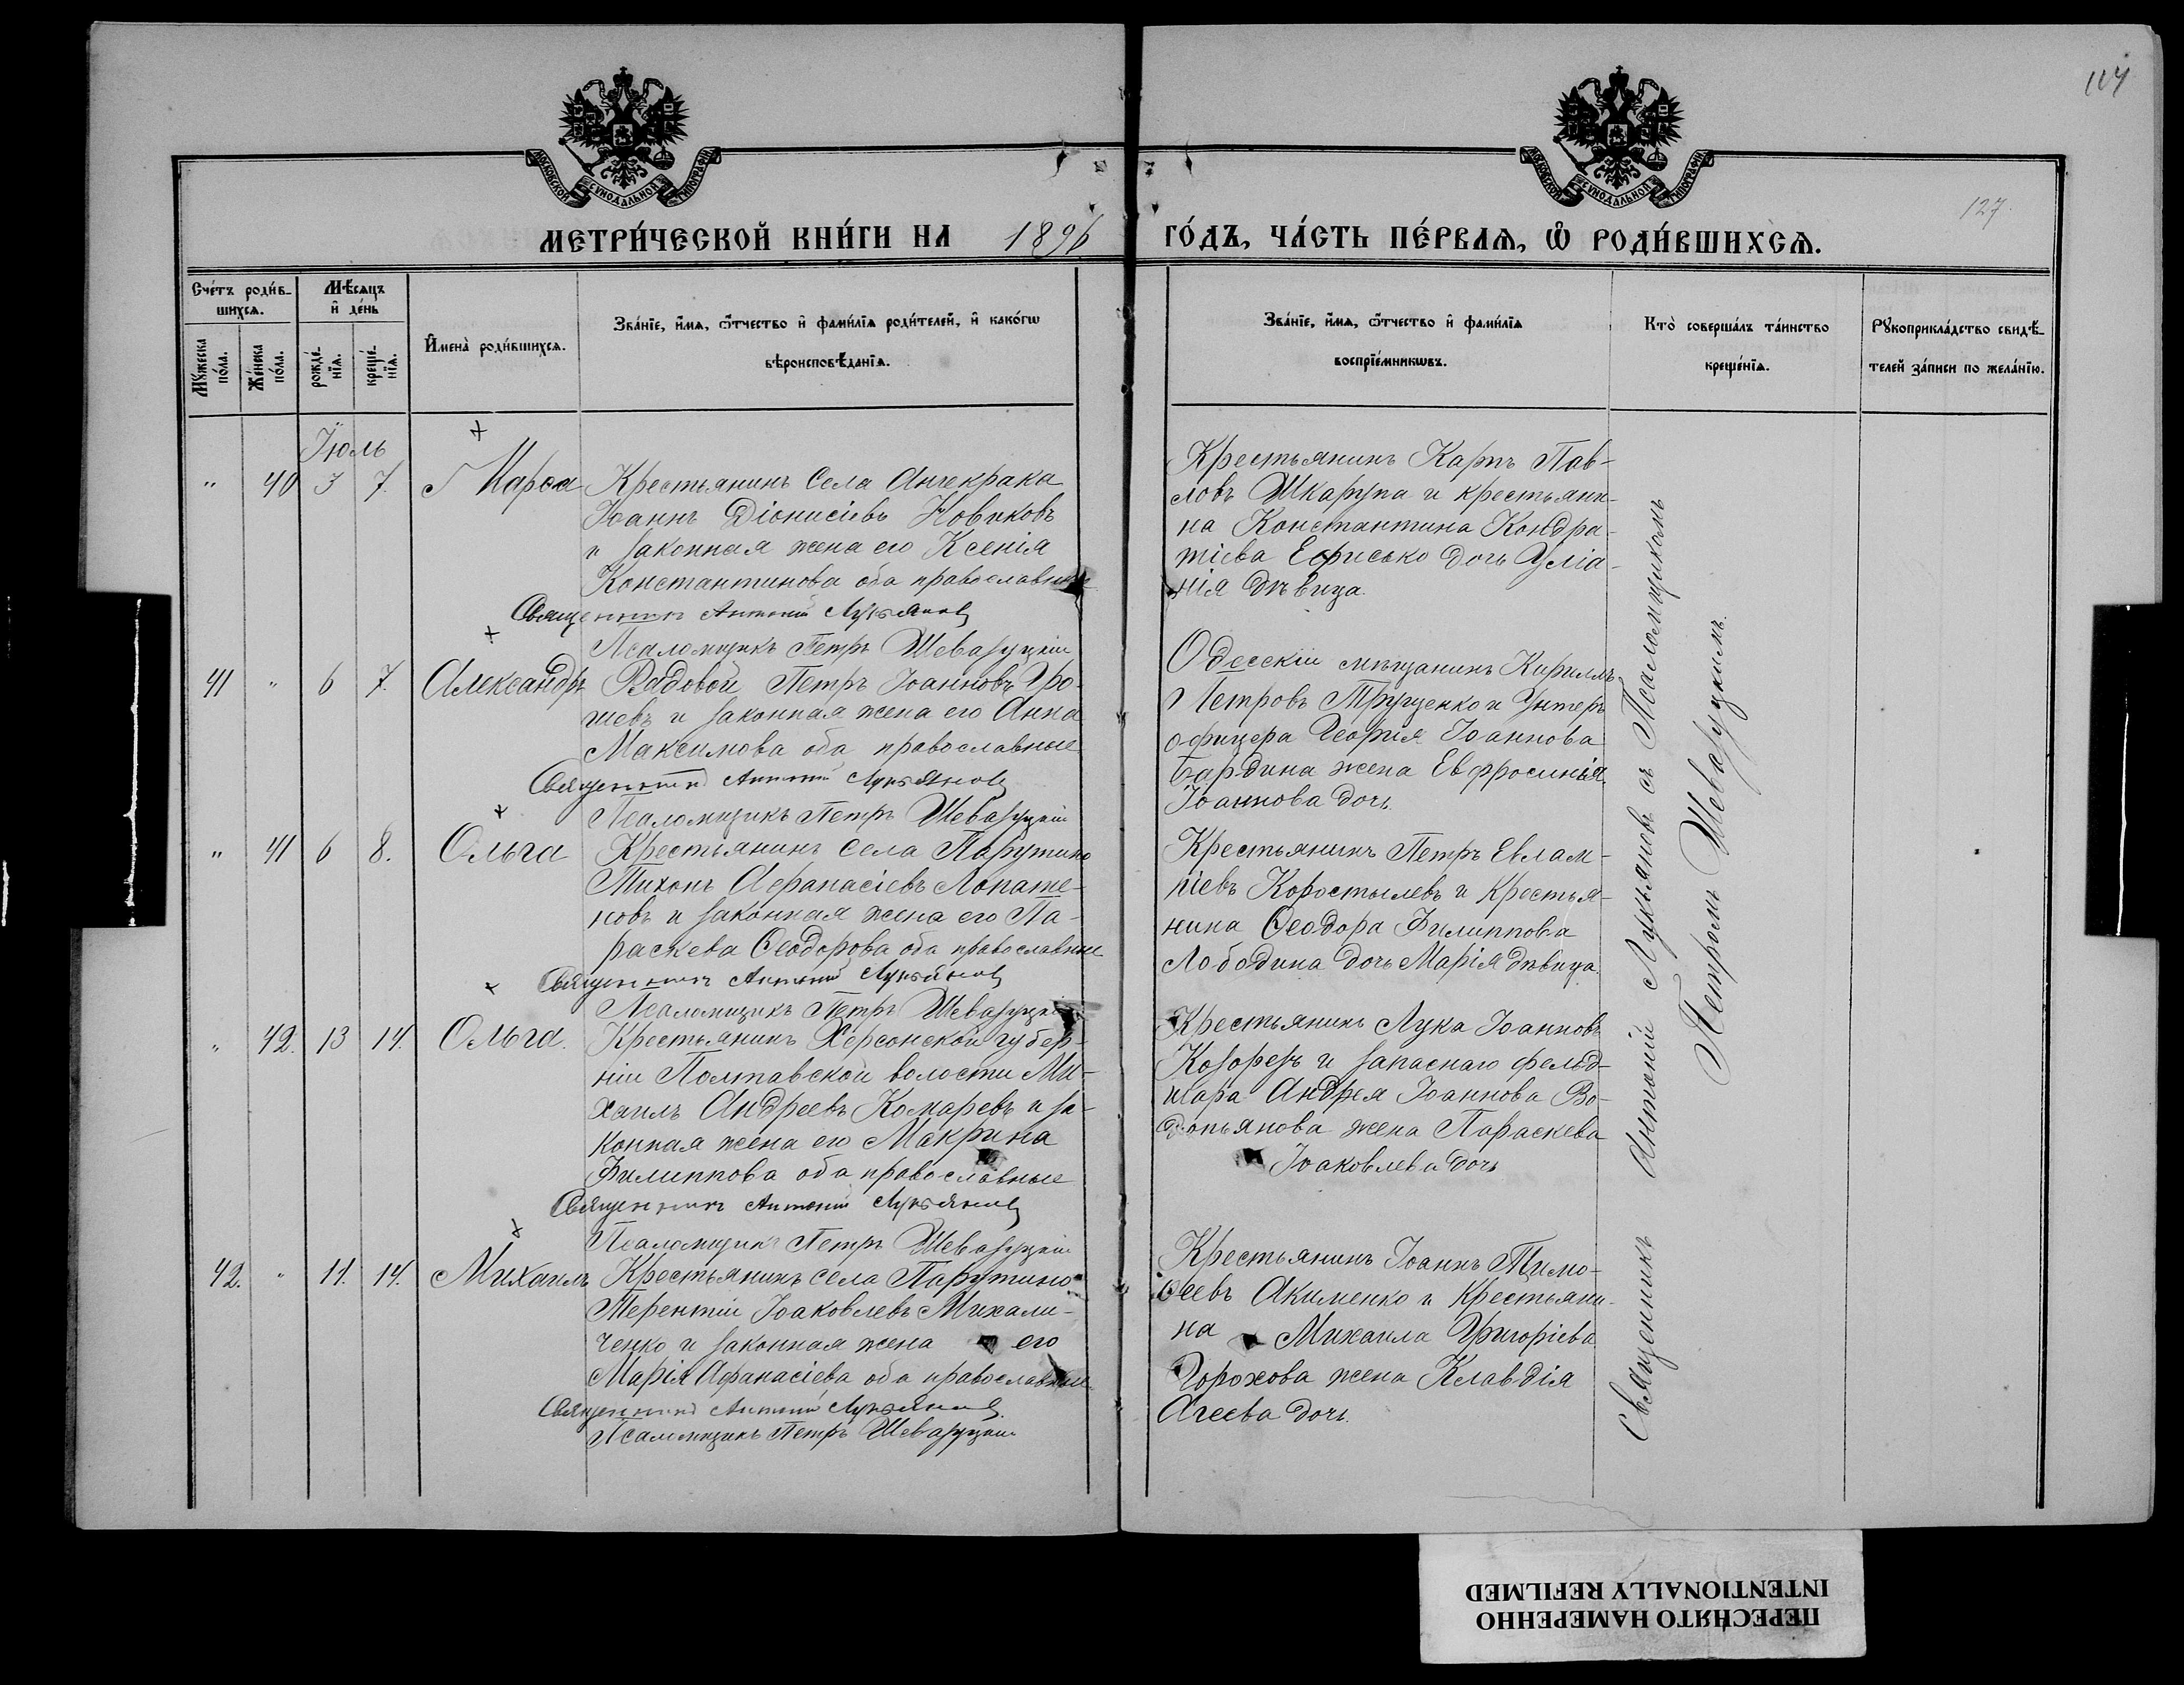 117
127.
МОСКОВСКОЙ СѴНОДАЛЬНОЙ ТИПОГРАФІИ
МОСКОВСКОЙ СѴНОДАЛЬНОЙ ТИПОГРАФІИ
МЕТРИ́ЧЕСКОЙ КНИ́ГИ НА 1896 ГО́ДЪ, ЧА́СТЬ ПЕ́РВАѦ, Ѽ РОДИ́ВШИХСѦ.
Сче́тъ роди́в-
шихсѧ.
Мꙋ́жеска по́ла.
Же́нска по́ла.
Мѣ́сѧцъ
и҆ де́нь
рожде́-
нїѧ.
креще́-
нїѧ.
И҆мена̀ роди́вшихсѧ.
Зва́нїе, и҆́мѧ, ѻ҆́тчество и҆ фами́лїѧ роди́телей, и҆ како́гѡ
вѣроисповѣ́данїѧ.
Зва́нїе, и҆́мѧ, ѻ҆́тчество и҆ фами́лїѧ
воспрїе́мникѡвъ.
Кто̀ соверша́лъ та́инство
креще́нїѧ.
Рꙋкоприкла́дство свидѣ́-
телей за́писи по жела́нїю.
Іюль
" 40 3 7. Марѳа Крестьянинъ Села Анчекрака
Іоаннъ Діонисіевъ Новиковъ
и законная жена его Ксенія
Константинова оба православные
Священникъ Антоній Лукьяновъ
Псаломщикъ Петръ Шевазуцкій
Крестьянинъ Карпъ Пав-
ловъ Шкарупа и крестьяни-
на Константина Кондра-
тіева Ефисько дочь Уліа-
нія дѣвица.
41 " 6 7. Александръ Рядовой Петръ Іоанновъ Гро-
шевъ и законная жена его Анна
Максимова оба православные
Священникъ Антоній Лукьяновъ
Псаломщикъ Петръ Шевазуцкій
Одесскій мѣщанинъ Кириллъ
Петровъ Трущенко и Унтеръ
офицера Георгія Іоаннова
Бардина жена Евфросинія
Іоаннова дочь
" 41 6 8. Ольга Крестьянинъ села Парутино
Тихонъ Аѳанасіевъ Лопате-
новъ и законная жена его Па-
раскева Ѳеодорова оба православные
Священникъ Антоній Лукьяновъ
Псаломщикъ Петръ Шевазуцкій
Крестьянинъ Петръ Евлам-
піевъ Коростылевъ и крестья-
нина Ѳеодора Филиппова
Лободина дочь Марія дѣвица.
" 42. 13 14. Ольга. Крестьянинъ Херсонской губер-
ніи Полтавской волости Ми-
хаилъ Андреевъ Комаревъ и за-
конная жена его Макрина
Филиппова оба православные
Священникъ Антоній Лукьяновъ
Псаломщикъ Петръ Шевазуцкій
Крестьянинъ Лука Іоанновъ
Козорезъ и запаснаго фельд-
шара Андрея Іоаннова Во-
допьянова жена Параскева
Іоаковлева дочь
42. " 11. 14. Михаилъ Крестьянинъ села Парутино
Терентій Іоаковлевъ Михали-
ченко и законная жена его
Марія Аѳанасіева оба православные
Священникъ Антоній Лукьяновъ.
Псаломщикъ Петръ Шевазуцкій
Крестьянинъ Іоаннъ Тимо-
ѳеевъ Акименко и Крестьяни-
на Михаила Григоріева
Горохова жена Клавдія
Агеева дочь.
Священникъ Антоній Лукьяновъ съ Псаломщикомъ
Петромъ Шевазуцкимъ.
ПЕРЕСНЯТО НАМЕРЕННО
INTENTIONALLY REFILMED